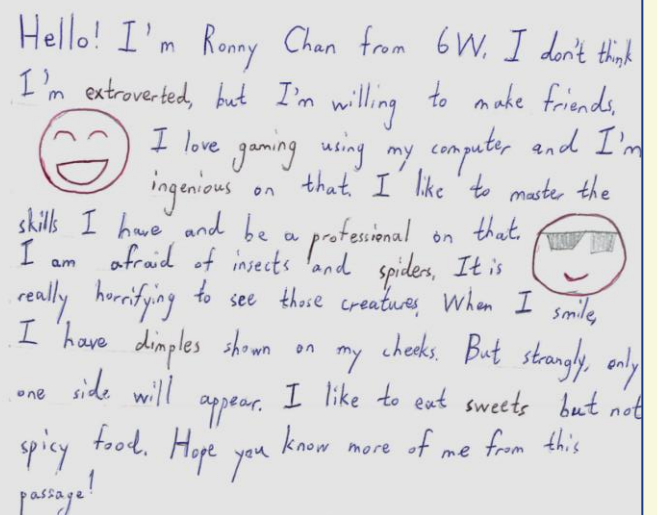 Hello! I'm Ronny Chan from 6W. I don't think
I'm extroverted, but I'm willing to make friends.
I love gaming using my computer and I'm
ingenious on that. I like to master the
skills I have and be a professional on that.
I am afraid of insects and spiders. It is
really horrifying to see those creatures. When I smile,
I have dimples shown on my cheeks. But strangly, only
one side will appear. I like to eat sweets but not
spicy food. Hope you know more of me from this
passage!